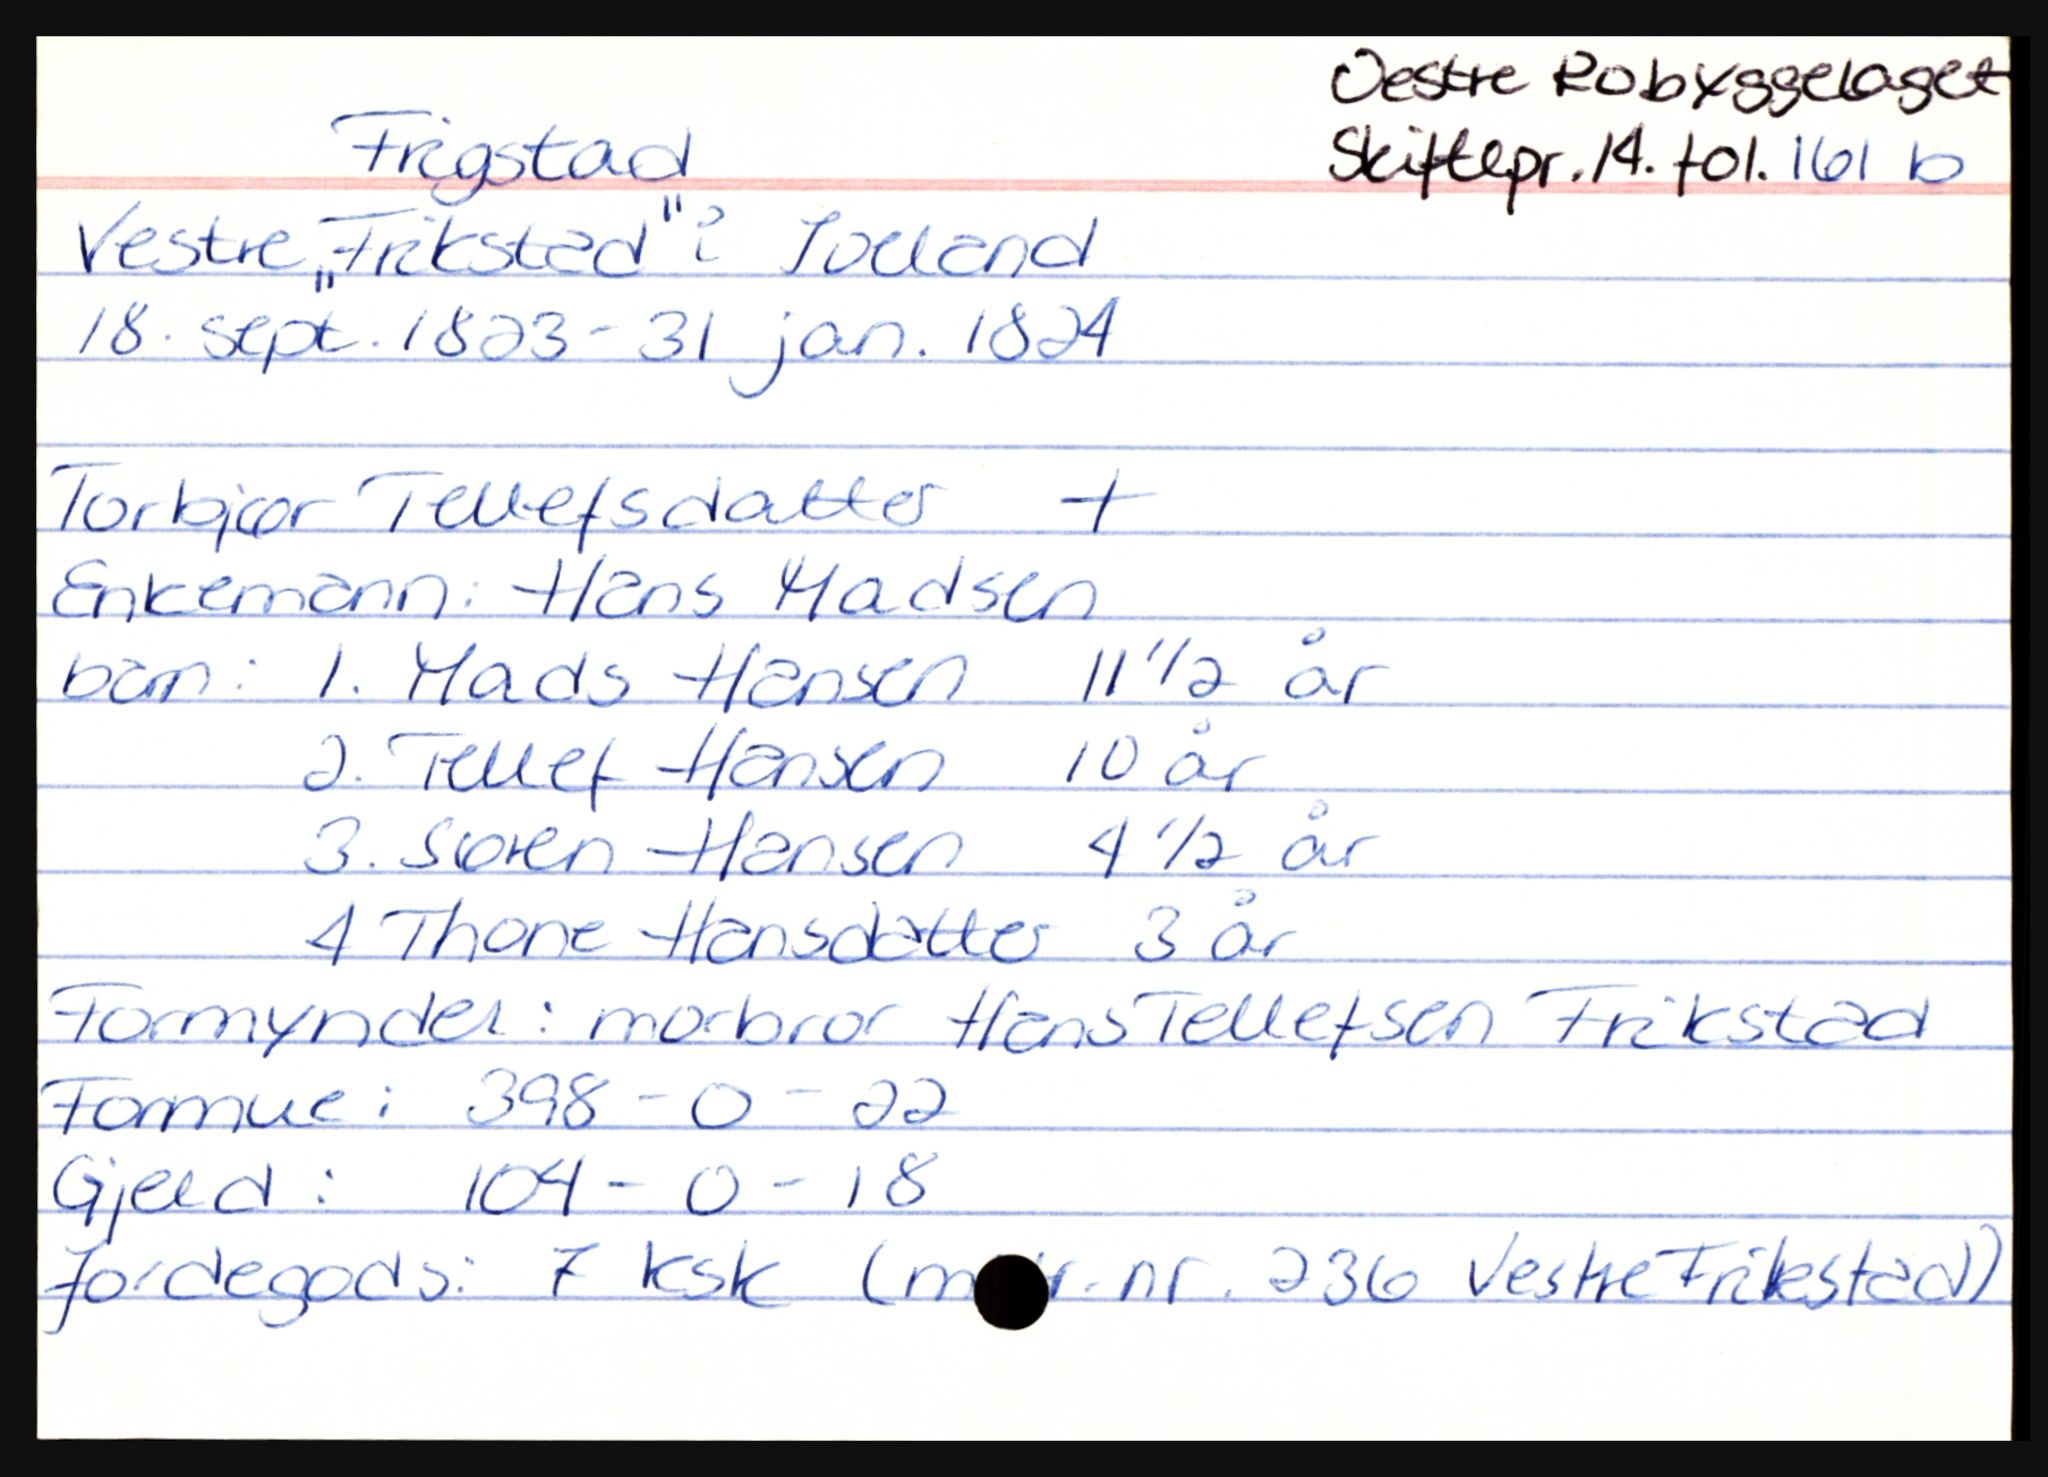 Vestre Robyggelaget
Skiftepr. 14. fol. 161 b
Frigstad
Vestre „Frikstad" i Iveland
18. sept. 1823 - 31 jan. 1824
Torbjør Tellefsdatter +
Enkemann: Hans Madsen
barn: 1. Mads Hansen 11 1/2 år
2. Tellef Hansen 10 år
3. Søren Hansen 4 1/2 år
4 Thone Hansdatter 3 år
Formynder: morbror Hans Tellefsen Frikstad
Formue: 398 - 0 - 22
Gjeld: 104 - 0 - 18
Jordegods: 7 ksk (m r. nr. 236 Vestre Frikstad)